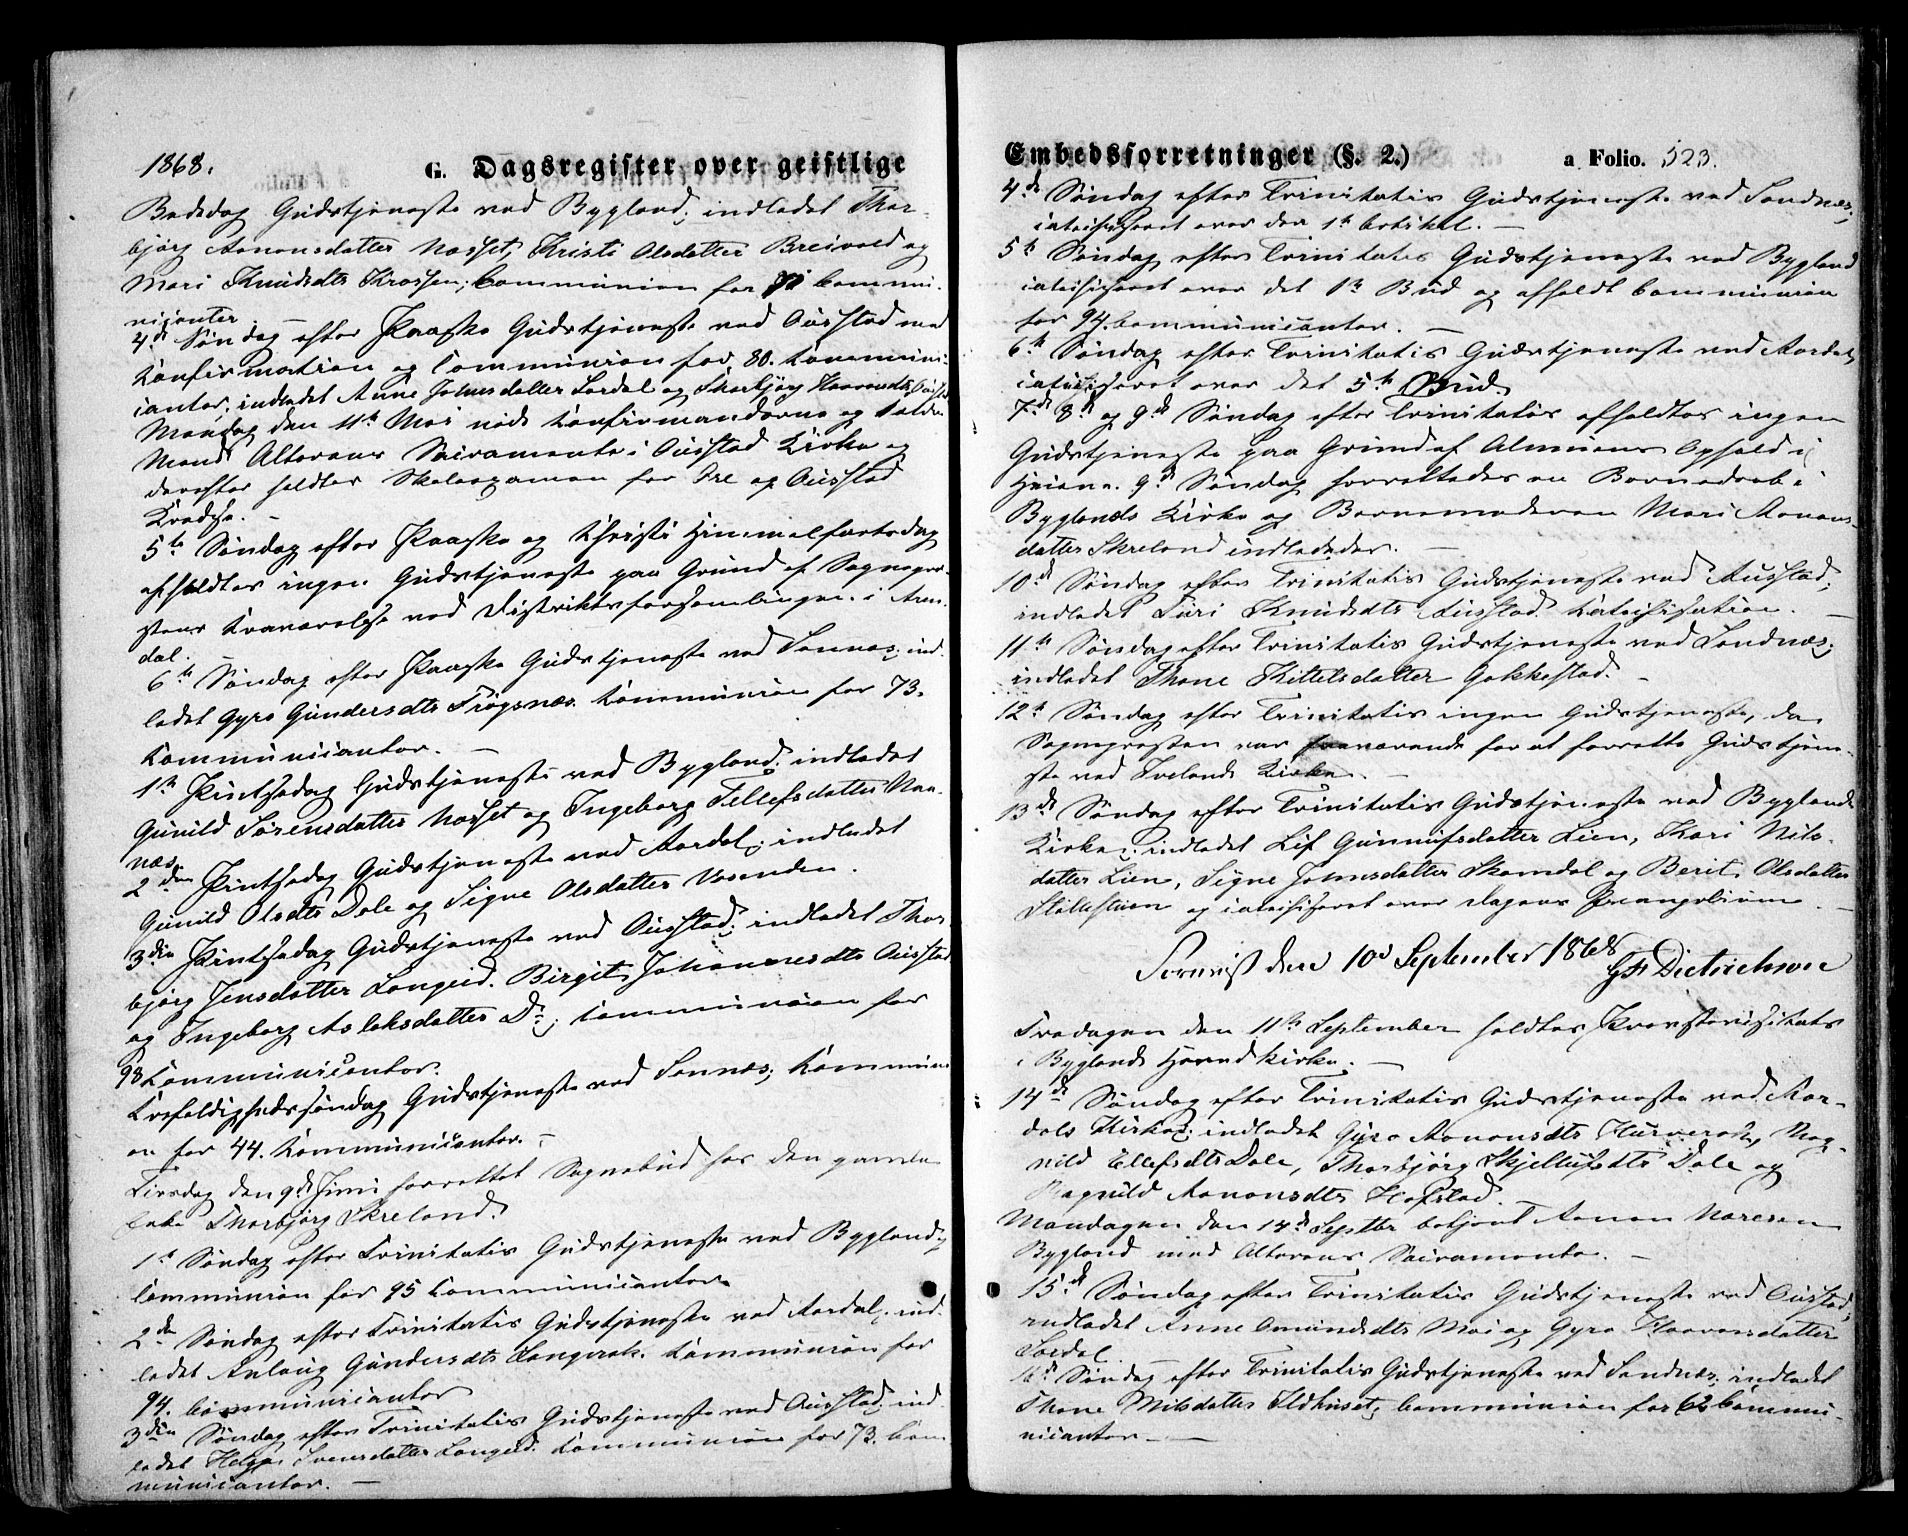 1868.
G. Dagsregister over geistlige
Bededag Gudstjeneste ved Bygland; indledet Thor-
bjørg Aanonsdatter Nasset, Kristi Olsdatter Breivold og
Mari Knudsdtr Krossen; Communion for Commu-
nicanter. —
4de Søndag efter Paaske Gudstjeneste ved Austad med
Konfirmation og Communion for 80. Kommuni-
canter; indledet Anne Johnsdatter Sordal og Thorbjørg Haavorsdtr
Mandag den 11te Mai nøde Konfirmanderne og
Mænd Alterens Sacramente i Austad Kirke og
derefter holdtes Skoleexamen for og Austad
Kredse. —
5te Søndag efter Paaske og Christi Himmelfartsdag
afholdtes ingen Gudstjeneste paa Grund af Sognepræ-
stens Fraværelse ved Distriktsforsamlingen i Aren-
dal.
6te Søndag efter Paaske Gudstjeneste ved Sannes; ind-
ledet Gyro Gundersdtr Frøgsnæs. Kommunion for 73.
Kommunicanter. —
1ste Pintsedag Gudstjeneste ved Bygland; indledet
Gunild Sørensdatter Nasset og Ingeborg Tellefsdatter Naa-
næs.
2den Pintsedag Gudstjeneste ved Aardal; indledet
Gunild Olsdtr Dale og Signe Olsdatter Vasenden.
3die Pintsedag Gudstjeneste ved Austad; indledet Thor-
bjørg Jensdatter Langeid. Birgit Johannesdtr Austad
og Ingeborg Aslaksdatter Do; Kommunion for
98 Kommunicanter.
Trefoldighedssøndag Gudstjeneste ved Sannes; Kommuni-
on for 44. Kommunicanter. —
Tirsdag den 9de Juni forrettet Sognebud hos den gamle
Thorbjørg Skreland.
1ste Søndag efter Trinitatis Gudstjeneste ved Bygland;
Communion for 95 Kommunicanter.
2den Søndag efter Trinitatis Gudstjeneste ved Aardal; ind-
ledet Anlaug Gundersdtr Langerak. Kommunion for
94. Communicanter
3die Søndag efter Trinitatis Gudstjeneste ved Austad; ind-
ledet Helge Svensdatter Langeid. Kommunion for 73. Com-
municanter. —
Embedsforretninger (§. 2.)
a Folio. 523.
4de Søndag efter Trinitatis Gudstjeneste ved Sandnæs;
catechiseret over den 1ste Artikel. —
5te Søndag efter Trinitatis Gudstjeneste ved Bygland
catechiseret over det 1ste Bud og afholdt Communion
for 94. Communicanter. —
6te Søndag efter Trinitatis Gudstjeneste ved Aardal,
catechiseret over det 5te Bud.
7de 8de og 9de Søndag efter Trinitatis afholdtes ingen
Gudstjeneste paa Grund af Almuens Ophold i
Heiene. 9de Søndag forrettedes en Barnedaab i
Byglands Kirke og Barnemoderen Mari Aanons-
datter Skreland indlededes. —
10de Søndag efter Trinitatis Gudstjeneste ved Austad;
indledet Turi Knudsdtr Austad. Katechisation. —
11te Søndag efter Trinitatis Gudstjeneste ved Sandnæs;
indledet Thone Kittelsdatter Gakkestad. —
12te Søndag efter Trinitatis ingen Gudstjeneste, da
Sognepresten var fraværende for at forrette Gudstjene-
ste ved Ivelands Kirke. —
13de Søndag efter Trinitatis Gudstjeneste ved Byglands
Kirke; indledet Lif Gunnufsdatter Lien, Kari Nils-
datter Lien, Signe Johnsdatter Skamdal og Berit Olsdatter
og catechiseret over Dagens Evangelium. —
den 10de September 1868 Dietrichson
Fredagen den 11te September holdtes Provstevisitats
i Byglands Hovedkirke. —
14de Søndag efter Trinitatis Gudstjeneste ved Aar-
dals Kirke; indledet Gyro Aanonsdtr Hurverak, Rag-
nild Ellefsdtr Dale, Thorbjørg Skjellufsdtr Dale og
Ragnild Aanonsdtr Hofstad.
Mandagen den 14de Septbr betjent Aanon Naresen
Bygland med Alterens Sacramente. —
15de Søndag efter Trinitatis Gudstjeneste ved Austad,
indledet Anne Omundsdtr Moi og Gyro Haavorsdatter
Sordal.
16de Søndag efter Trinitatis Gudstjeneste ved Sandnæs; indledet
Thone Nilsdatter Ildhuset; Communion for 62 Commu-
nicanter. —